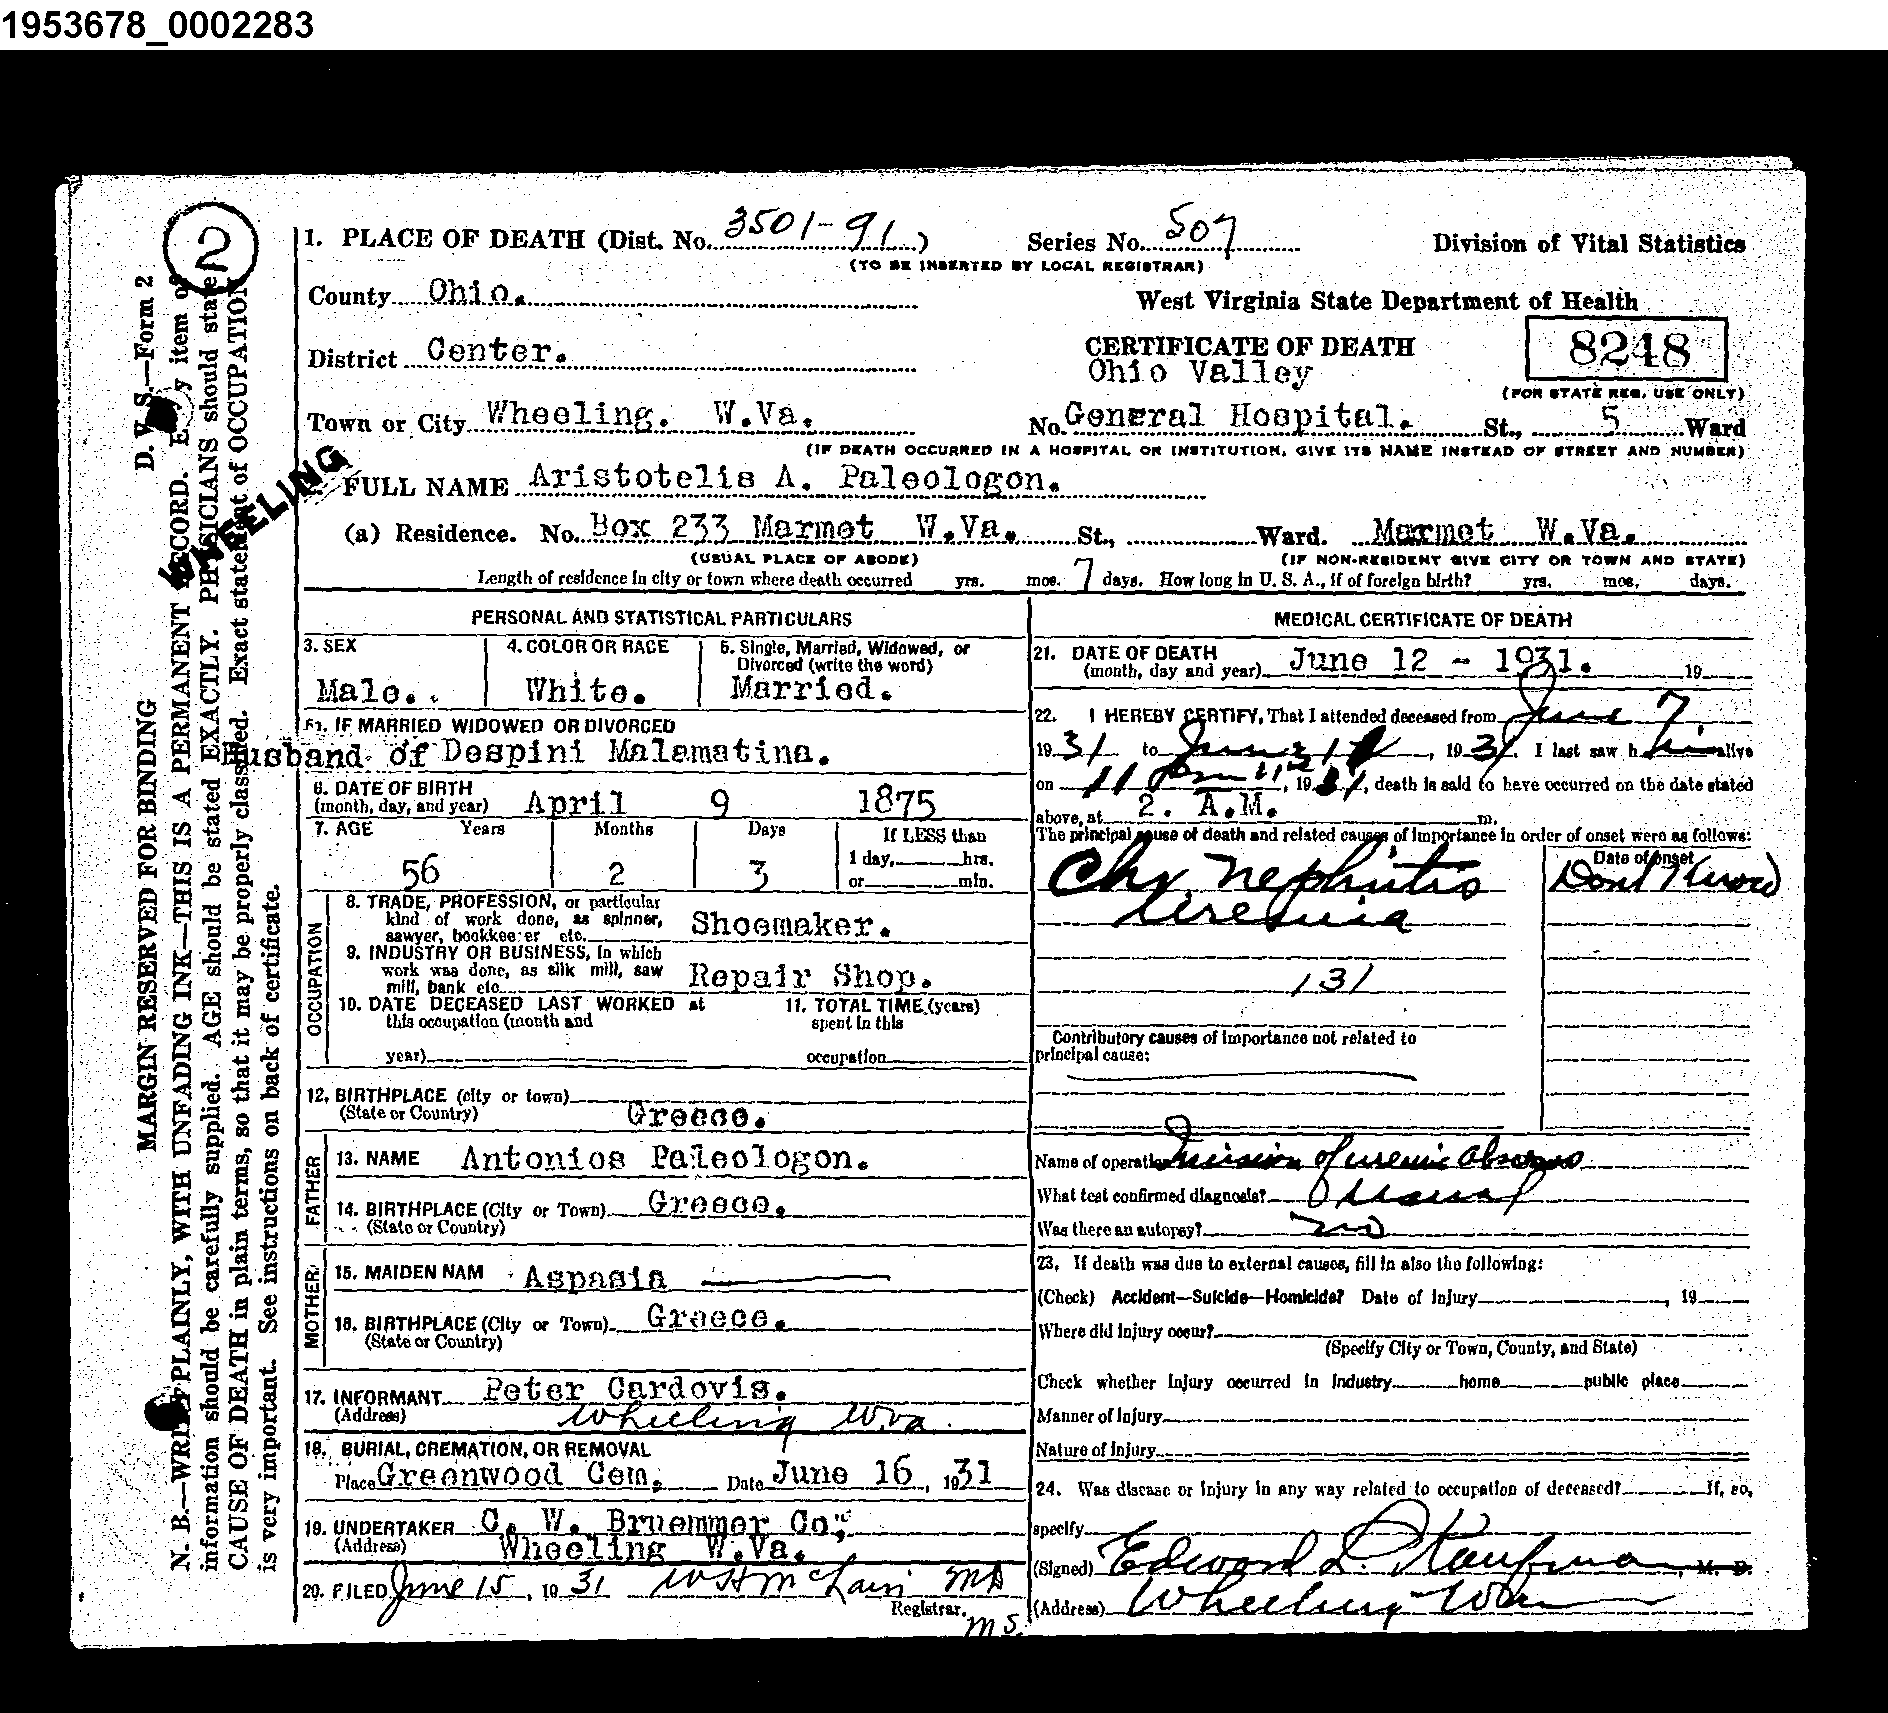 1953678_0002283
2
D. V. S.—Form 2
MARGIN RESERVED FOR BINDING
N. B.—WRITE PLAINLY, WITH UNFADING INK—THIS IS A PERMANENT RECORD. Every item of
information should be carefully supplied. AGE should be stated EXACTLY. PHYSICIANS should state
CAUSE OF DEATH in plain terms, so that it may be properly classified. Exact statement of OCCUPATION
is very important. See instructions on back of certificate.
WHEELING
1. PLACE OF DEATH (Dist. No. 3501-91) Series No. 507 Division of Vital Statistics
(TO BE INSERTED BY LOCAL REGISTRAR)
County Ohio. West Virginia State Department of Health
District Center. CERTIFICATE OF DEATH 8248
Ohio Valley
(FOR STATE REG. USE ONLY)
Town or City Wheeling. W.Va. No. General Hospital. St., 5 Ward
(IF DEATH OCCURRED IN A HOSPITAL OR INSTITUTION, GIVE ITS NAME INSTEAD OF STREET AND NUMBER)
FULL NAME Aristotelis A. Paleologon.
(a) Residence. No. Box 233 Marmet W.Va. St., Ward. Marmet W.Va.
(USUAL PLACE OF ABODE) (IF NON-RESIDENT GIVE CITY OR TOWN AND STATE)
Length of residence in city or town where death occurred yrs. mos. 7 days. How long in U. S. A., if of foreign birth? yrs. mos. days.
PERSONAL AND STATISTICAL PARTICULARS
3. SEX 4. COLOR OR RACE 5. Single, Married, Widowed, or
Divorced (write the word)
Male. White. Married.
IF MARRIED WIDOWED OR DIVORCED
Husband of Despini Malamatina.
6. DATE OF BIRTH
(month, day, and year) April 9 1875
7. AGE Years Months Days If LESS than
56 2 3 1 day, hrs.
or min.
OCCUPATION
8. TRADE, PROFESSION, or particular
kind of work done, as spinner,
sawyer, bookkeeper etc. Shoemaker.
9. INDUSTRY OR BUSINESS, in which
work was done, as silk mill, saw
mill, bank etc. Repair Shop.
10. DATE DECEASED LAST WORKED at 11. TOTAL TIME (years)
this occupation (month and spent in this
year) occupation
12. BIRTHPLACE (city or town)
(State or Country) Greece.
FATHER
13. NAME Antonios Paleologon.
14. BIRTHPLACE (City or Town) Greece.
(State or Country)
MOTHER
15. MAIDEN NAM Aspasia
16. BIRTHPLACE (City or Town) Greece.
(State or Country)
17. INFORMANT Peter Cardovis.
(Address) Wheeling W.Va.
18. BURIAL, CREMATION, OR REMOVAL
Place Greenwood Cem. Date June 16, 1931
19. UNDERTAKER C. W. Bruemmer Co.,
(Address) Wheeling W.Va.
20. FILED June 15, 19 31 W H McLain MD
Registrar.
M S.
MEDICAL CERTIFICATE OF DEATH
21. DATE OF DEATH
(month, day and year) June 12 - 1931. 19
22. I HEREBY CERTIFY, That I attended deceased from June 7,
1931 to June, 1931. I last saw him alive
on June 11, 1931, death is said to have occurred on the date stated
above, at 2. A.M. m.
The principal cause of death and related causes of importance in order of onset were as follows:
Date of onset
Chr. Nephritis Dont Know
Uremia
131
Contributory causes of importance not related to
principal cause:
Name of operation Incision of uremic Abscess
What test confirmed diagnosis?
Was there an autopsy? No
23. If death was due to external causes, fill in also the following:
(Check) Accident—Suicide—Homicide? Date of injury , 19
Where did injury occur?
(Specify City or Town, County, and State)
Check whether injury occurred in industry home public place
Manner of injury
Nature of injury
24. Was disease or injury in any way related to occupation of deceased? If, so,
specify
(Signed) Edward L. Kaufman, M. D.
(Address) Wheeling W Va